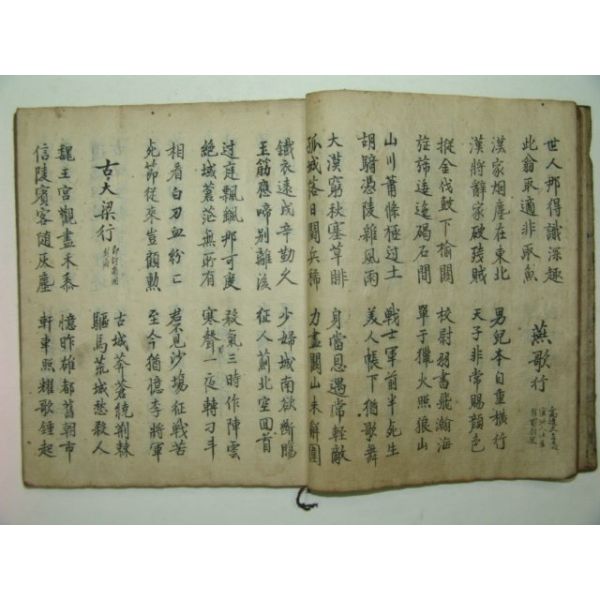 世人那得識深趣
此翁取適非取魚
燕歌行
漢家烟塵在東北
漢將辭家破殘賊
男兒本自重橫行
天子非常賜顔色
摐金伐鼓下榆關
旌旆逶迤碣石間
校尉羽書飛瀚海
單于獵火照狼山
山川蕭條極邊土
胡騎憑陵雜風雨
戰士軍前半死生
美人帳下猶歌舞
大漠窮秋塞草腓
孤城落日鬪兵稀
身當恩遇常輕敵
力盡關山未解圍
鐵衣遠戍辛勤久
玉筋應啼別離後
少婦城南欲斷膓
征人薊北空回首
邊庭飄颻那可度
絶域蒼茫無所有
殺氣三時作陣雲
寒聲一夜轉刁斗
相看白刃血紛〻
死節從來豈顧勲
君不見沙塲征戰苦
至今猶憶李將軍
古大梁行
古城莽蒼繞荆棘
驅馬荒城愁殺人
魏王宮觀盡禾黍
信陵賓客隨灰塵
憶昨雄都舊朝市
軒車照耀歌鍾起